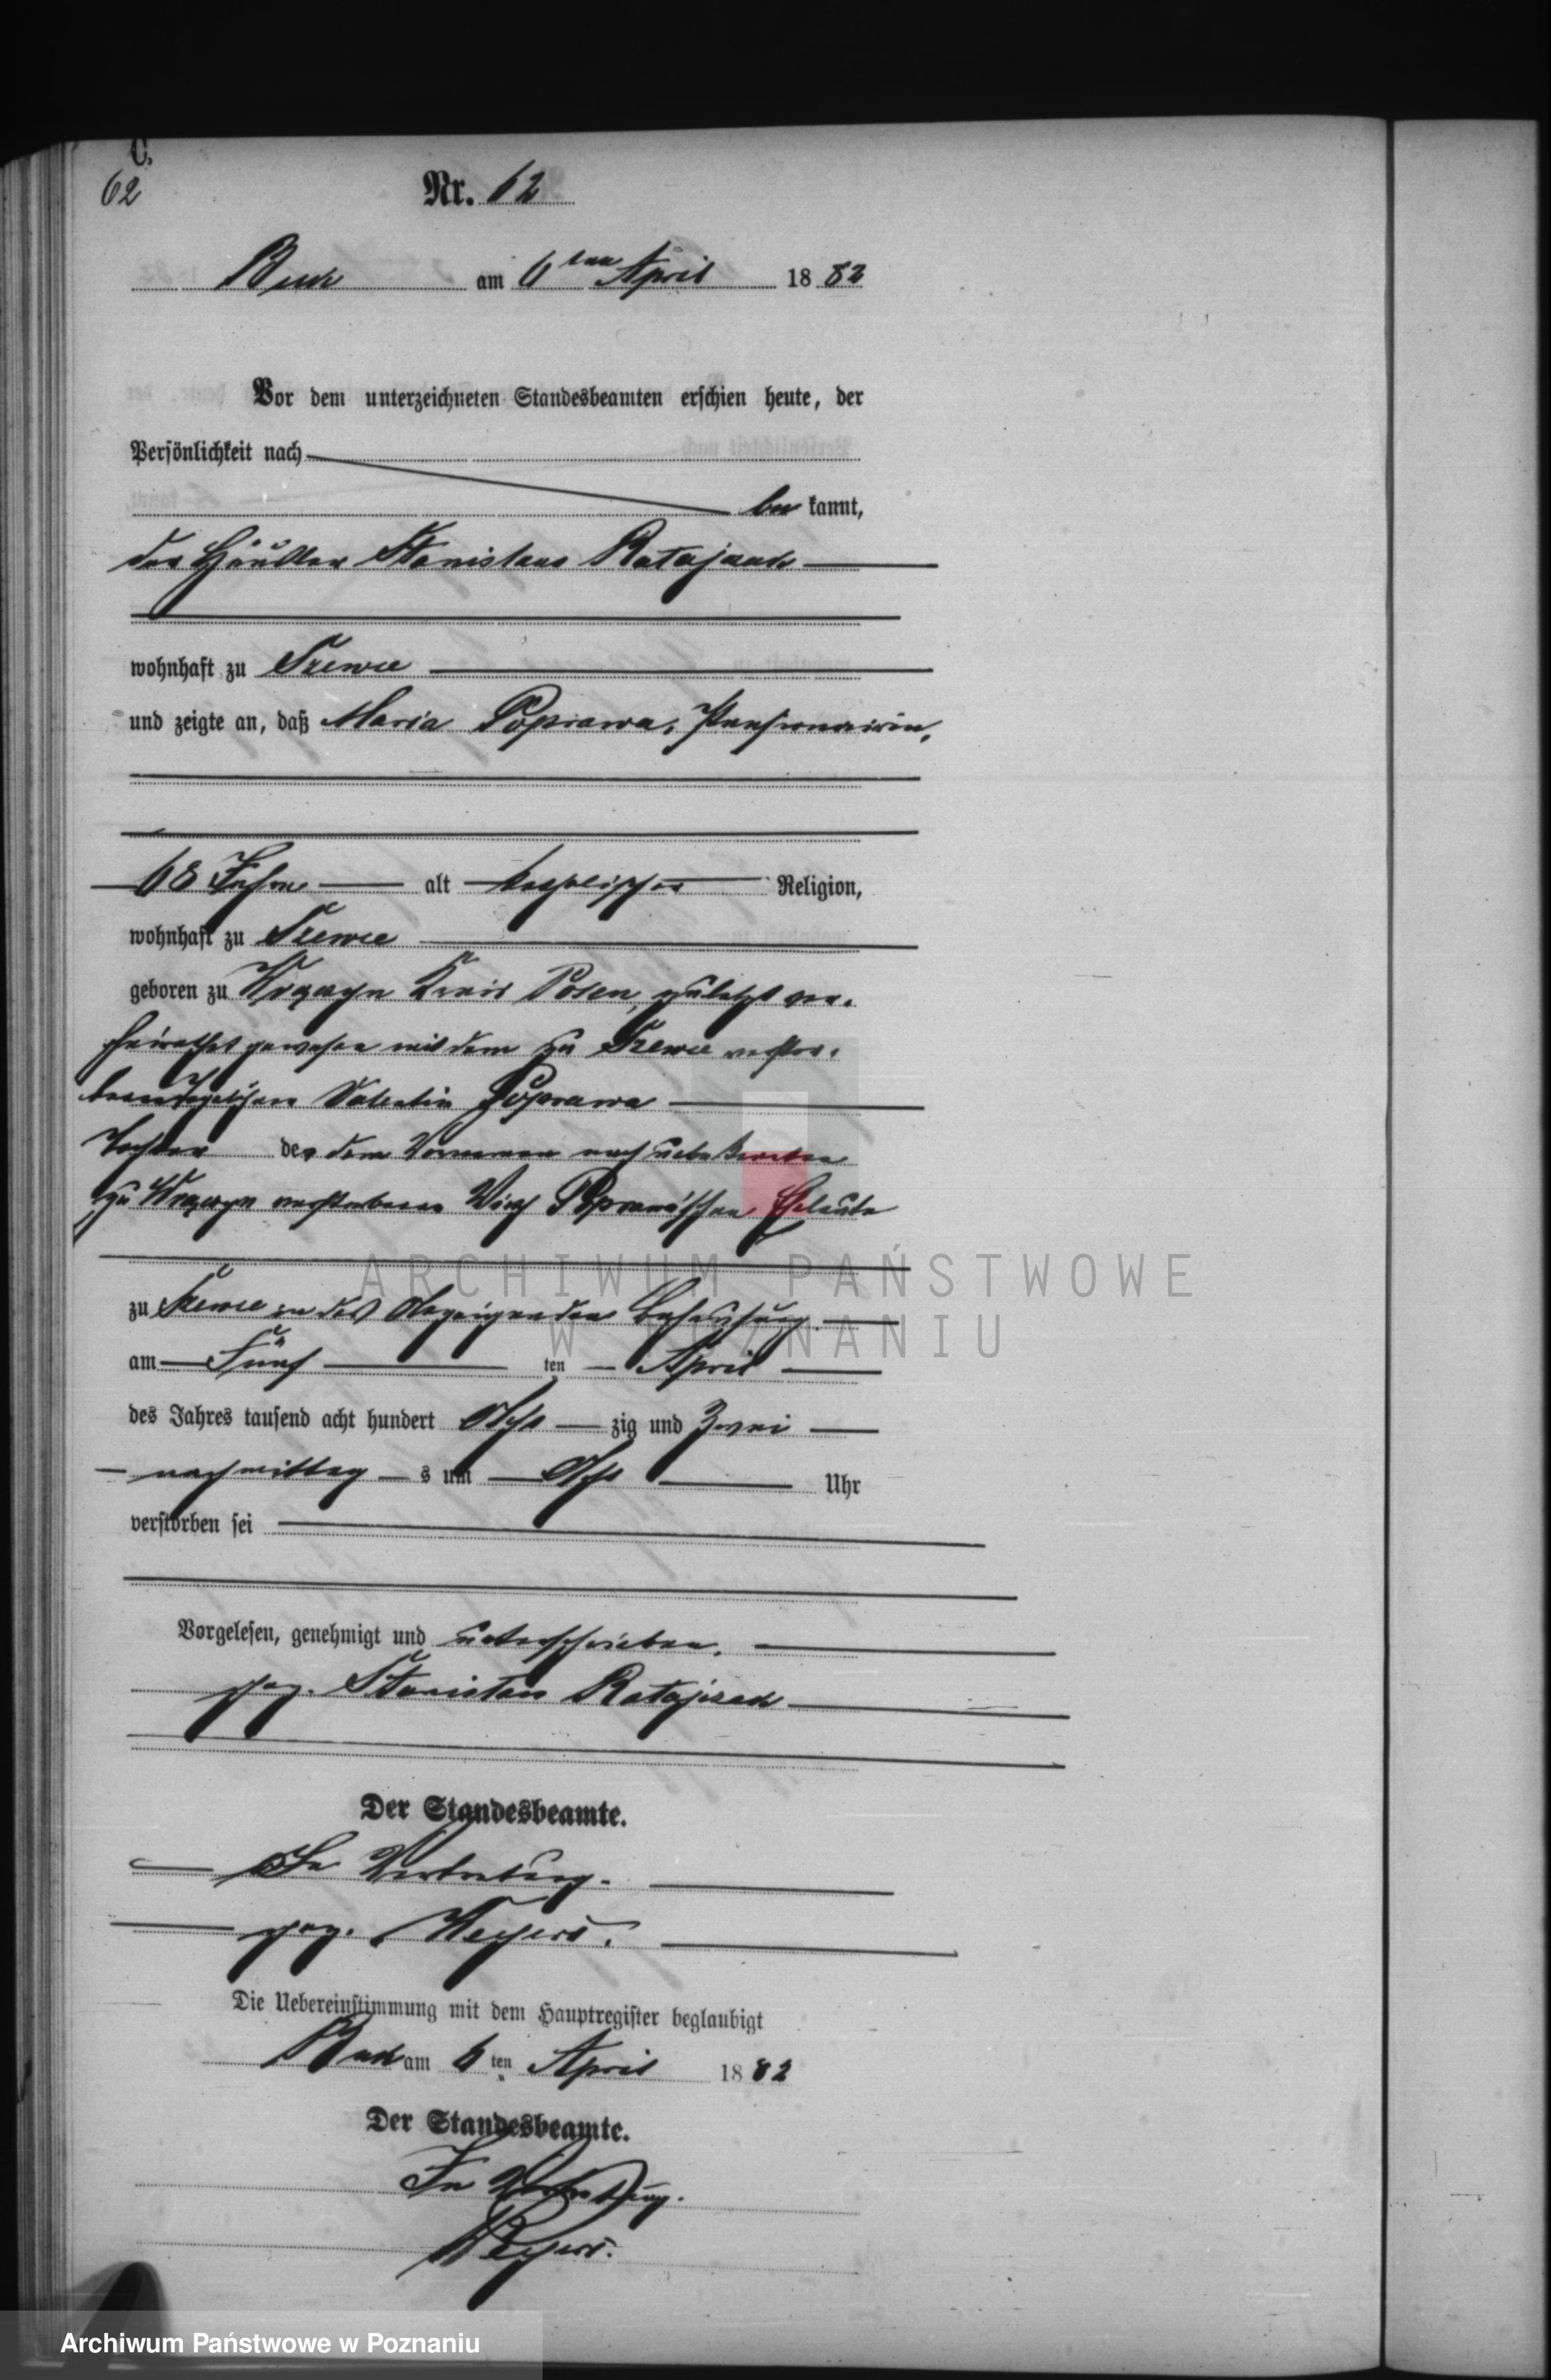 C.
62
Nr. 62
Buk am 6ten April 1882
Vor dem unterzeichneten Standesbeamten erschien heute, der
Persönlichkeit nach
be kannt,
der Häusler Stanislaus Ratajczak
wohnhaft zu Szewce
und zeigte an, daß Maria Poprawa,
68 Jahre alt katholischer Religion,
wohnhaft zu Szewce
geboren zu Kreis Posen, zuletzt ver-
heirathet gewesen mit dem zu Szewce verstor-
benen Valentin Poprawa
Tochter der dem Vornamen nach unbekannten
zu verstorbenen Wirth Eheleute
zu Szewce in des Anzeigenden Behausung
am Fünf ten April
des Jahres tausend acht hundert Acht zig und Zwei
nachmittag s um Acht Uhr
verstorben sei
Vorgelesen, genehmigt und unterschrieben.
gez. Stanislaus Ratajczak
Der Standesbeamte.
In Vertretung.
gez.
Die Uebereinstimmung mit dem Hauptregister beglaubigt
Buk am 6 ten April 1882
Der Standesbeamte.
In Vertretung.
ARCHIWUM PAŃSTWOWE
W POZNANIU
Archiwum Państwowe w Poznaniu